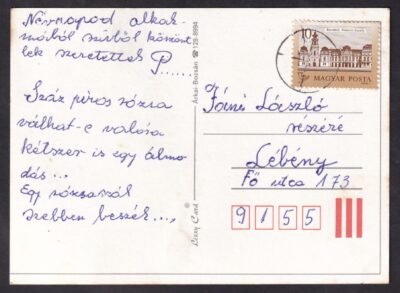 Névnapod alkal-
mából szívből köszön-
lek szeretettel
P......
Száz piros rózsa
válhat-e valóra
kétszer is egy álmo-
dás...
Egy rózsaszál
szebben beszél...,
Árkai-Rozsán ☎ 129-8994
Lizzy Card
10
MAGYAR POSTA
Jáni László
részére
Lébény
Fő utca 173
9155